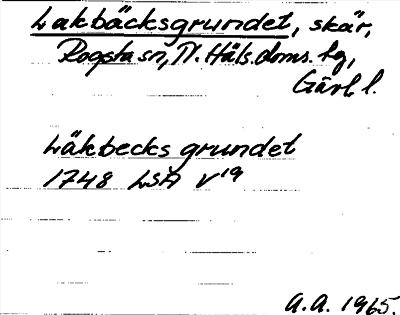 Lakbäcksgrundet, skär,
Rogsta sn, N. Häls. doms. hg,
Gävl. l.
Läkbecks grundet
1748 LSA V19
A.A. 1965.